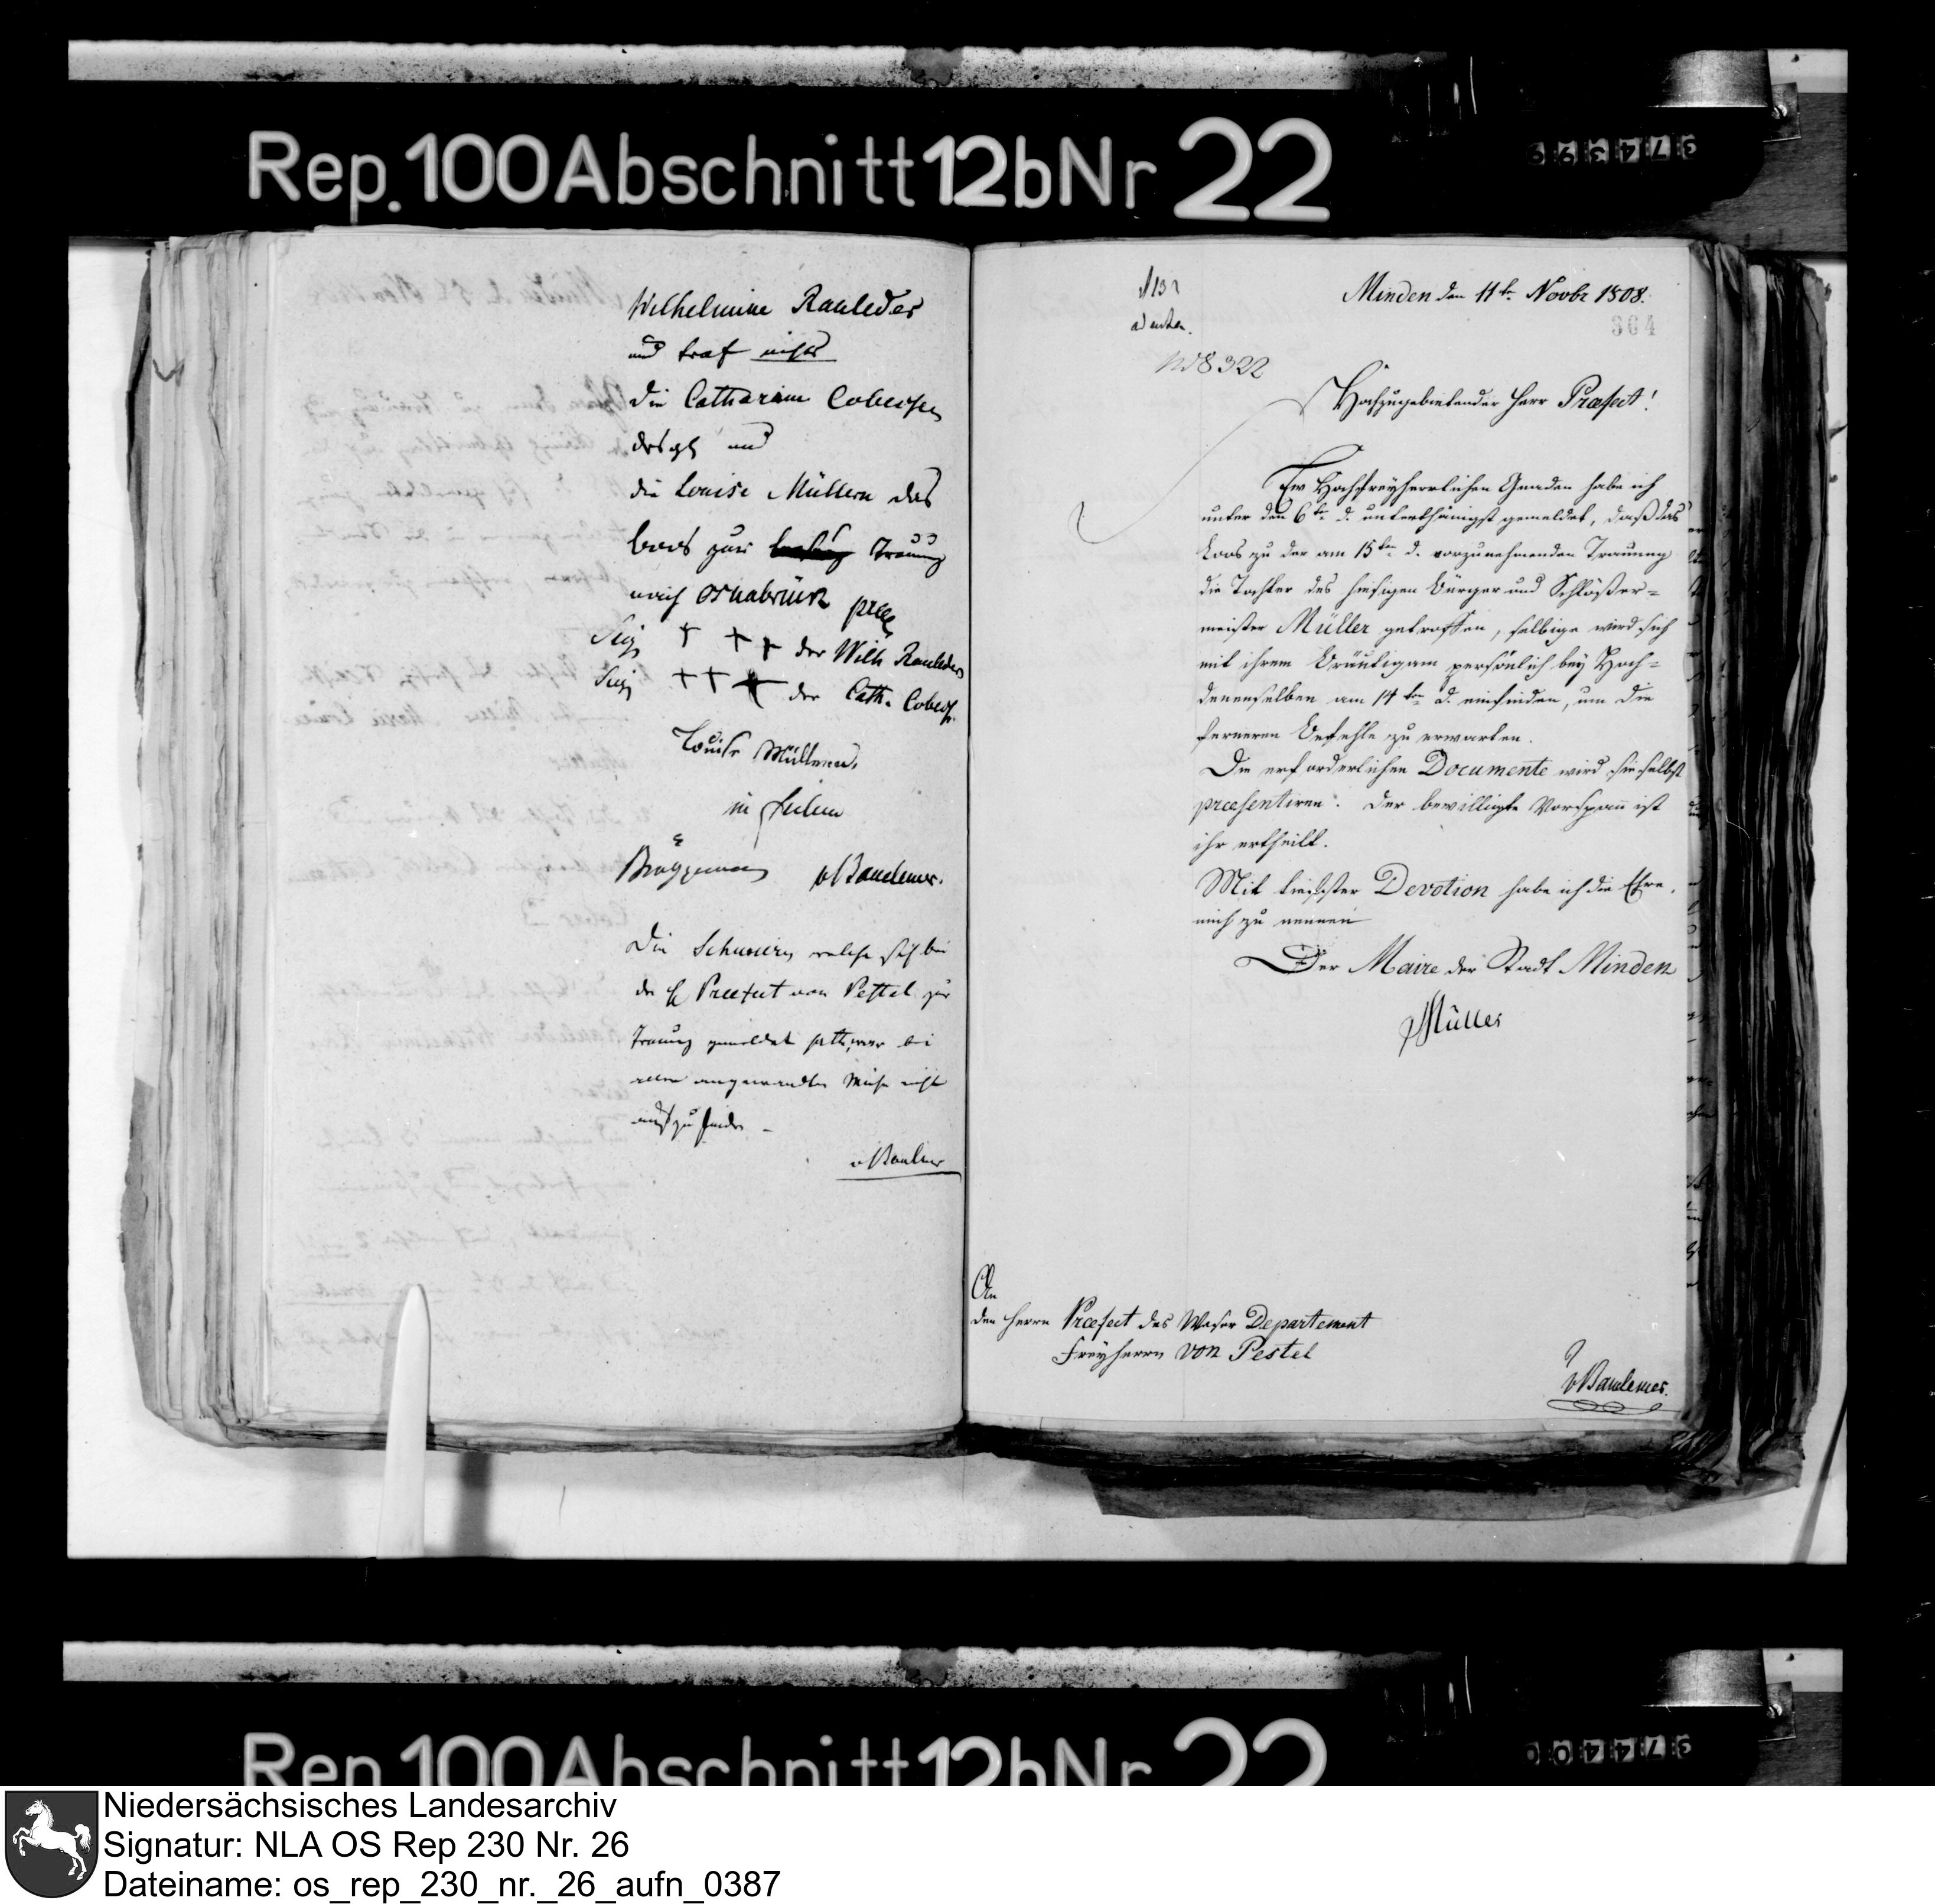 Rep. 100 Abschnitt 12b Nr 22
Wilhelmine Rauleder
und traf nichts
die Catharine Cobersch
desgl und
die Louise Müllern das
Loos zur Trauung
nach Osnabrück
Sig † † † der Wilh Rauleder
Sig † † † der Cath. Cobersch.
Louise Müllern.
in fidem
Brüggemann vBandemer.
Die welche sich bei
der H Praefect von Pestel zur
Trauung gemeldet hatte, war bei
aller angewandten Mühe nicht
auszufinden –
vBandemer
Minden den 11tn Novbr 1808.
364
No 8322
Hochzugebietender Herr Præfect!
Ew Hochfreyherrlichen Gnaden habe ich
unter den 6tn d. unterthänigst gemeldet, daß das
Loos zu der am 15ten d. vorzunehmenden Trauung
die Tochter des hiesigen Bürger und Schlößer=
meister Müller getroffen, selbige wird sich
mit ihrem Bräutigam persönlich bey Hoch=
denenselben am 14ten d. einfinden, um die
ferneren Befehle zu erwarten.
Die erforderlichen Documente wird sie selbst
præsentiren. Der bewilligte Vorspann ist
ihr ertheilt.
Mit tiefster Devotion habe ich die Ehre,
mich zu nennen
Der Maire der Stadt Minden
Müller
An
den Herrn Præfect des Weser Departement
Freyherrn von Pestel
vBandemer.
Rep. 100 Abschnitt 12b Nr 22
Niedersächsisches Landesarchiv
Signatur: NLA OS Rep 230 Nr. 26
Dateiname: os_rep_230_nr._26_aufn_0387